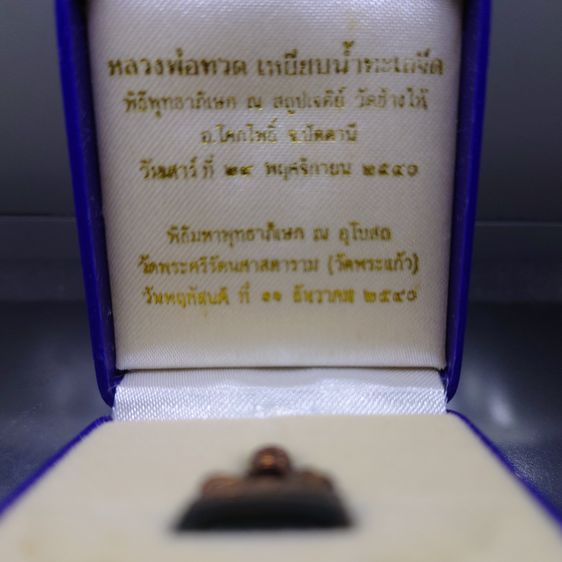 หลวงพ่อทวด เหยียบน้ำทะเลจืด
พิธีพุทธาภิเษก ณ สถูปเจดีย์ วัดช้างให้
อ.โคกโพธิ์ จ.ปัตตานี
วันเสาร์ ที่ ๒๔ พฤศจิกายน ๒๕๔๐
พิธีมหาพุทธาภิเษก ณ อุโบสถ
วัดพระศรีรัตนศาสดาราม (วัดพระแก้ว)
วันพฤหัสบดี ที่ ๑๑ ธันวาคม ๒๕๔๐